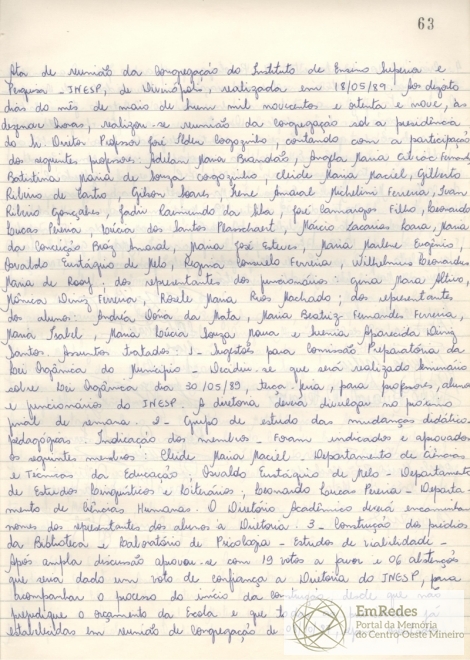 63
Ata de reunião da Congregação do Instituto de Ensino Superior e
Pesquisa - INESP, de Divinópolis, realizada em 18/05/89. Aos dezoito
dias do mês de maio de hum mil novecentos e oitenta e nove, às
dezenove horas, realizou-se reunião da congregação sob a presidência
do Sr. Diretor Professor José Helder, contando com a participação
dos seguintes professores: Adelan Maria Brandão, Angela Maria
Batistina Maria de Souza, Cleide Maria Maciel, Gilberto
Ribeiro de Castro, Gilson Soares, Irene Amaral Michelini Ferreira, Ivan
Ribeiro Gonçalves, Jadir Raimundo da Silva, José Camargos Filho, Leonardo
Lucas Pereira, Lúcia dos Santos Planschaert, Márcio Zacarias Lara, Maria
da Conceição Braz Amaral, Maria José Esteves, Maria Marlene Eugênio,
Osvaldo Eustáquio de Melo, Regina Consuelo Ferreira, Wilhelmus Leonardus
Maria de Rooy; dos representantes dos funcionários: Gema Mara Altivo,
Mônica Diniz Ferreira, Rosele Maria Rios Machado; dos representantes
dos alunos: Andréa Dória da Mata, Maria Beatriz Fernandes Ferreira,
Maria Isabel, Maria Lúcia Souza Nova e Aparecida Diniz
Santos. Assuntos tratados: 1 - Sugestões para Comissão Preparatória da
Lei Orgânica do Município - Decidiu-se que será realizado Seminário
sobre Lei Orgânica dia 30/05/89, terça-feira, para professores, alunos
e funcionários do INESP. A diretoria deverá divulgar no próximo
final de semana. 2 - Grupo de estudo das mudanças didático
pedagógicas. Indicação dos membros - Foram indicados e aprovados
os seguintes membros: Cleide Maria Maciel - Departamento de Ciências
e Técnicas da Educação, Osvaldo Eustáquio de Melo - Departamento
de Estudos Linguísticos e Literários, Leonardo Lucas Pereira - Departa-
mento de Ciências Humanas. O Diretório Acadêmico deverá encaminhar
nomes dos representantes dos alunos à Diretoria. 3 - Construção dos prédios
da Biblioteca e Laboratório de Psicologia - Estudos de viabilidade -
Após ampla discussão aprovou-se com 19 votos a favor e 06 abstenções
que seria dado um voto de confiança à Diretoria do INESP, para
acompanhar o processo do início da construção desde que não
prejudique o orçamento da Escola e que
estabelecidas em reunião de congregação de
EmRedes
Portal da Memória
do Centro-Oeste Mineiro